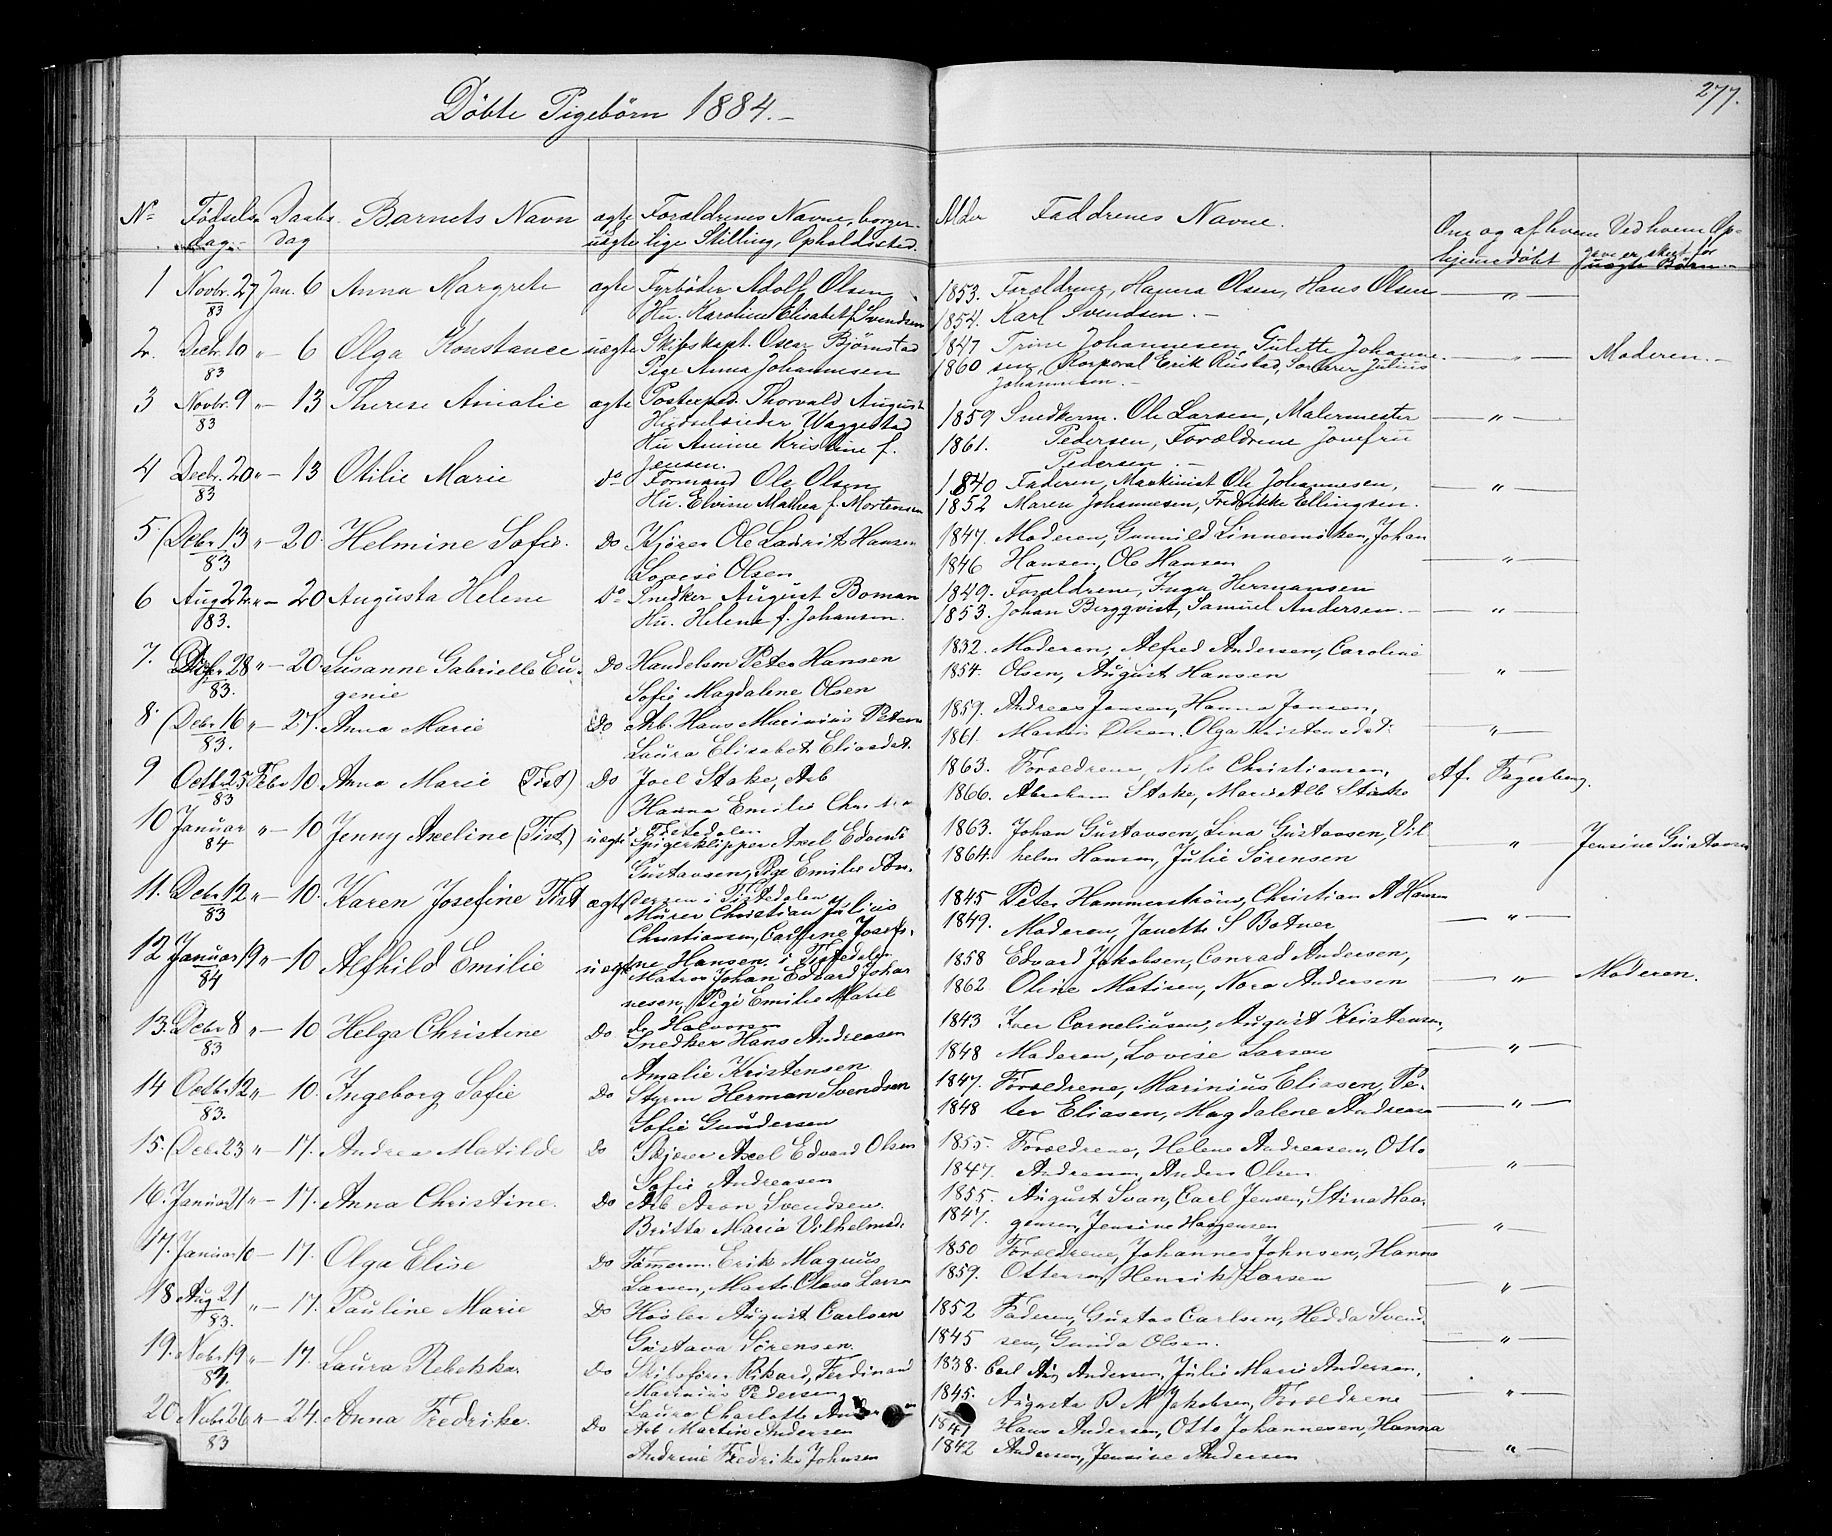 Döbte Pigebörn 1884.-
277.
No Fødsels dag Daabs dag Barnets Navn ægte uægte Forældrenes Navne, borgerlige Stilling, Opholdssted. Alder Faddrenes Navne. Om og af hvem hjemmedøbt Ved hvem Opgave er skeet for uægte Börn.
1 Novbr. 27 83 Jan. 6 Anna Margrete ægte Fyrböder Adolf Olsen 1853. Forældrene, Hanna Olsen, Hans Olsen — " —
Hu. Karoline Elisabet f. Svendsen 1854. Karl Svendsen. -
2. Decbr. 10 83 " - 6 Olga Konstance uægte Skibskapt. Oscar Björnstad 1847 Trine Johannesen Gulette Johanne- — " — Moderen. -
Pige Anna Johannesen 1860 sen, Korporal Erik Rustad, Julius
Johannesen. -
3 Novbr. 9 83 " - 13 Therese Amalie ægte Postexped. Thorvald August 1859 Snedkerm. Ole Larsen, Malermester — " —
Waggestad 1861. Pedersen, Forældrene Jomfru
Hu Amine Kristine f. Pedersen. -
Jensen.
4 Decbr. 20 83 " - 13 Otilie Marie do Formand Ole Olsen 1840 Faderen, Maskinist Ole Johannesen, — " —
Hu. Elvine Mathea f. Mortensen 1852 Maren Johannesen, Fredrikke Ellingsen.
5. Debr 13 83 " - 20. Helmine Sofie. Do Kjörer Ole Lauritz Hansen 1847. Moderen, Gunnild Linnemöken, Johan
Lovise Olsen 1846 Hansen, Ole Hansen — " —
6 Aug. 22 83. " - 20 Augusta Helene Do Snedker August Boman 1849. Forældrene, Inga Hermansen
Hu. Helene f. Johansen. 1853. Johan Bergqvist, Samuel Andersen. - — " —
7. 28 83. " - 20 Susanne Gabrielle Eu- Do Handelsm Peter Hansen 1832. Moderen, Alfred Andersen, Caroline
genie Sofie Magdalene Olsen 1854. Olsen, August Hansen — " —
8 Debr 16 83. " - 27. Anna Marie Do Arb. Hans Marinius Petersen 1859. Andreas Jensen, Hanna Jensen,
Laura Elisabet Eliasdat. 1861. Martin Olsen. Olga Kristensdat. — " —
9 Octbr 25 83 Febr 10 Anna Marie (Tist) Do Joel Stake, Arb 1863. Forældrene, Nils Christiansen, Af. Fagerberg.
Hanna Emilie 1866. Abraham Stake, Marie Alb Stake
10 Januar 84 " - 10 Jenny Axeline (Tist) uægte i Tistedalen
Spigerklipper Axel Edvard 1863. Johan Gustavsen, Lina Gustavsen, Vil- — " — Jensine Gustavsen
Gustavsen, Pige Emilie An- 1864. helm Hansen, Julie Sörensen
dersen i Tistedalen
11. Debr 12 83 " - 10. Karen Josefine Tist ægte Murer Christian Julius 1845 Peter Hammerström, Christian A Hansen
Christiansen, Josefi- 1849. Moderen, Janette S Botner — " —
ne Hansen. i Tistedalen
12 Januar 19 84 " - 10 Alfhild Emilie uægte Matros Johan Edvard Johan- 1858 Edvard Jakobsen, Conrad Andersen,
nesen, Pige Emilie Matil 1862 Oline Matisen, Nora Andersen — " — Moderen.
de Halvorsen
13. Debr 8 83 " - 10 Helga Christine Do Snedker Hans Andreasen 1843 Iver Corneliusen, August Kristensen,
Amalie Kristensen 1848 Moderen, Lovise Larsen — " —
14 Octbr. 12 83. " - 10. Ingeborg Sofie Do Styrm Herman Svendsen 1847. Forældrene, Marinius Eliasen, Pe-
Sofie Gundersen 1848 ter Eliasen, Magdalene Andreasen — " —
15. Debr 23 " - 17. Andrea Matilde Do Skjörer Axel Edvard Olsen 1855. Forældrene, Helene Andreasen, Otto
Sofie Andreasen 1847. Andreasen, Anders Olsen — " —
16. Januar 21 " - 17. Anna Christine. Do Arb Aron Svendsen. 1855. August Svan, Carl Jensen, Stina Haa-
Britta Maria Vilhelmsdt. 1847. gensen, Jensine Haagensen — " —
17. Januar " - 17. Olga Elise Do Tömerm. Erik Magnus 1850 Forældrene, Johannes Johnsen, Hanna
Larsen, Marte Olava Larsen 1859. Ottersen, Henrik Larsen — " —
18 Aug 21 83. " - 17. Pauline Marie Do August Carlsen 1852 Faderen, Gustav Carlsen, Hedda Svend
Gustava Sörensen. 1845 sen, Gunda Olsen. — " —
19. Nobr 19 " - 17. Laura Rebekka. Do Skibsförer Rikard, Ferdinand 1838. Carl Aug Andersen, Julie Marie Andersen,
Marinius Pedersen 1845. Augusta B M Jakobsen, Forældrene — " —
Laura Charlotte Andersen
20 Nobr 26 83 " - 24. Anna Fredrike. Do Arb Martin Andersen 1847 Hans Andersen, Otto Johannesen, Hanna
Andrine Fredrike Johnsen 1842 Andersen, Jensine Andersen — " —